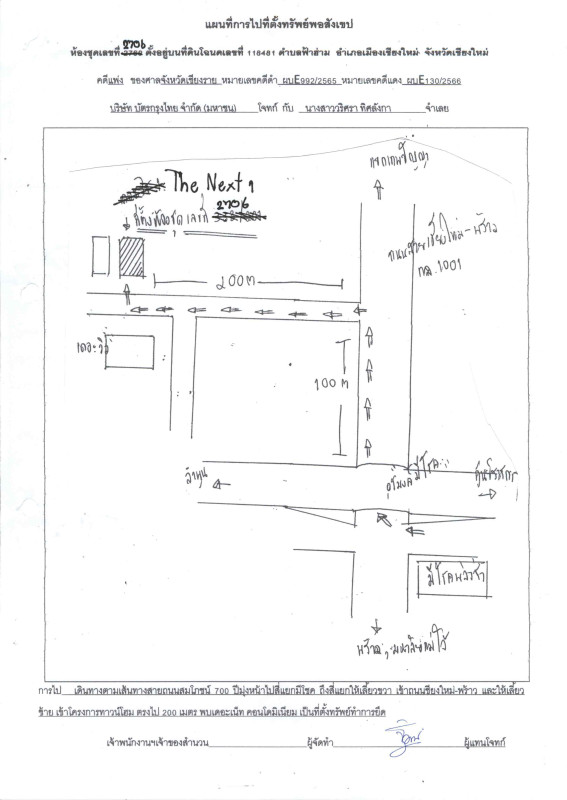 แผนที่การไปที่ตั้งทรัพย์พอสังเขป
2706
ห้องชุดเลขที่ ตั้งอยู่บนที่ดินโฉนดเลขที่ 118481 ตำบลฟ้าฮ่าม อำเภอเมืองเชียงใหม่ จังหวัดเชียงใหม่
คดีแพ่ง ของศาลจังหวัดเชียงราย หมายเลขคดีดำ ผบE992/2565 หมายเลขคดีแดง ผบE130/2566
บริษัท บัตรกรุงไทย จำกัด (มหาชน) โจทก์ กับ นางสาววริศรา ทิศลังกา จำเลย
The Next 1
2706
ที่ตั้งห้องชุดเลขที่
ถนนสายเชียงใหม่-พร้าว
ทล.1001
200 m
เดอะวิว
100 m
ลำพูน
อุโมงค์มีโชค
ศูนย์ราชการ
มีโชคพลาซ่า
การไป เดินทางตามเส้นทางสายถนนสมโภชน์ 700 ปีมุ่งหน้าไปสี่แยกมีโชค ถึงสี่แยกให้เลี้ยวขวา เข้าถนนเชียงใหม่-พร้าว และให้เลี้ยว
ซ้าย เข้าโครงการทาวน์โฮม ตรงไป 200 เมตร พบเดอะเน็ท คอนโดมิเนียม เป็นที่ตั้งทรัพย์ทำการยึด
เจ้าพนักงานฯเจ้าของสำนวน ผู้จัดทำ ผู้แทนโจทก์